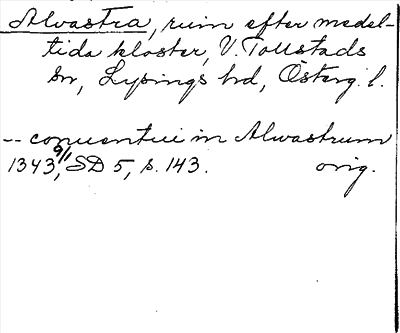 Alvastra, ruin efter medel-
tida kloster, V. Tollstads
sn, Lysings hd, Österg. l.
-- conuentui in Alwastrum
1343 9/1, SD 5, s. 143. orig.